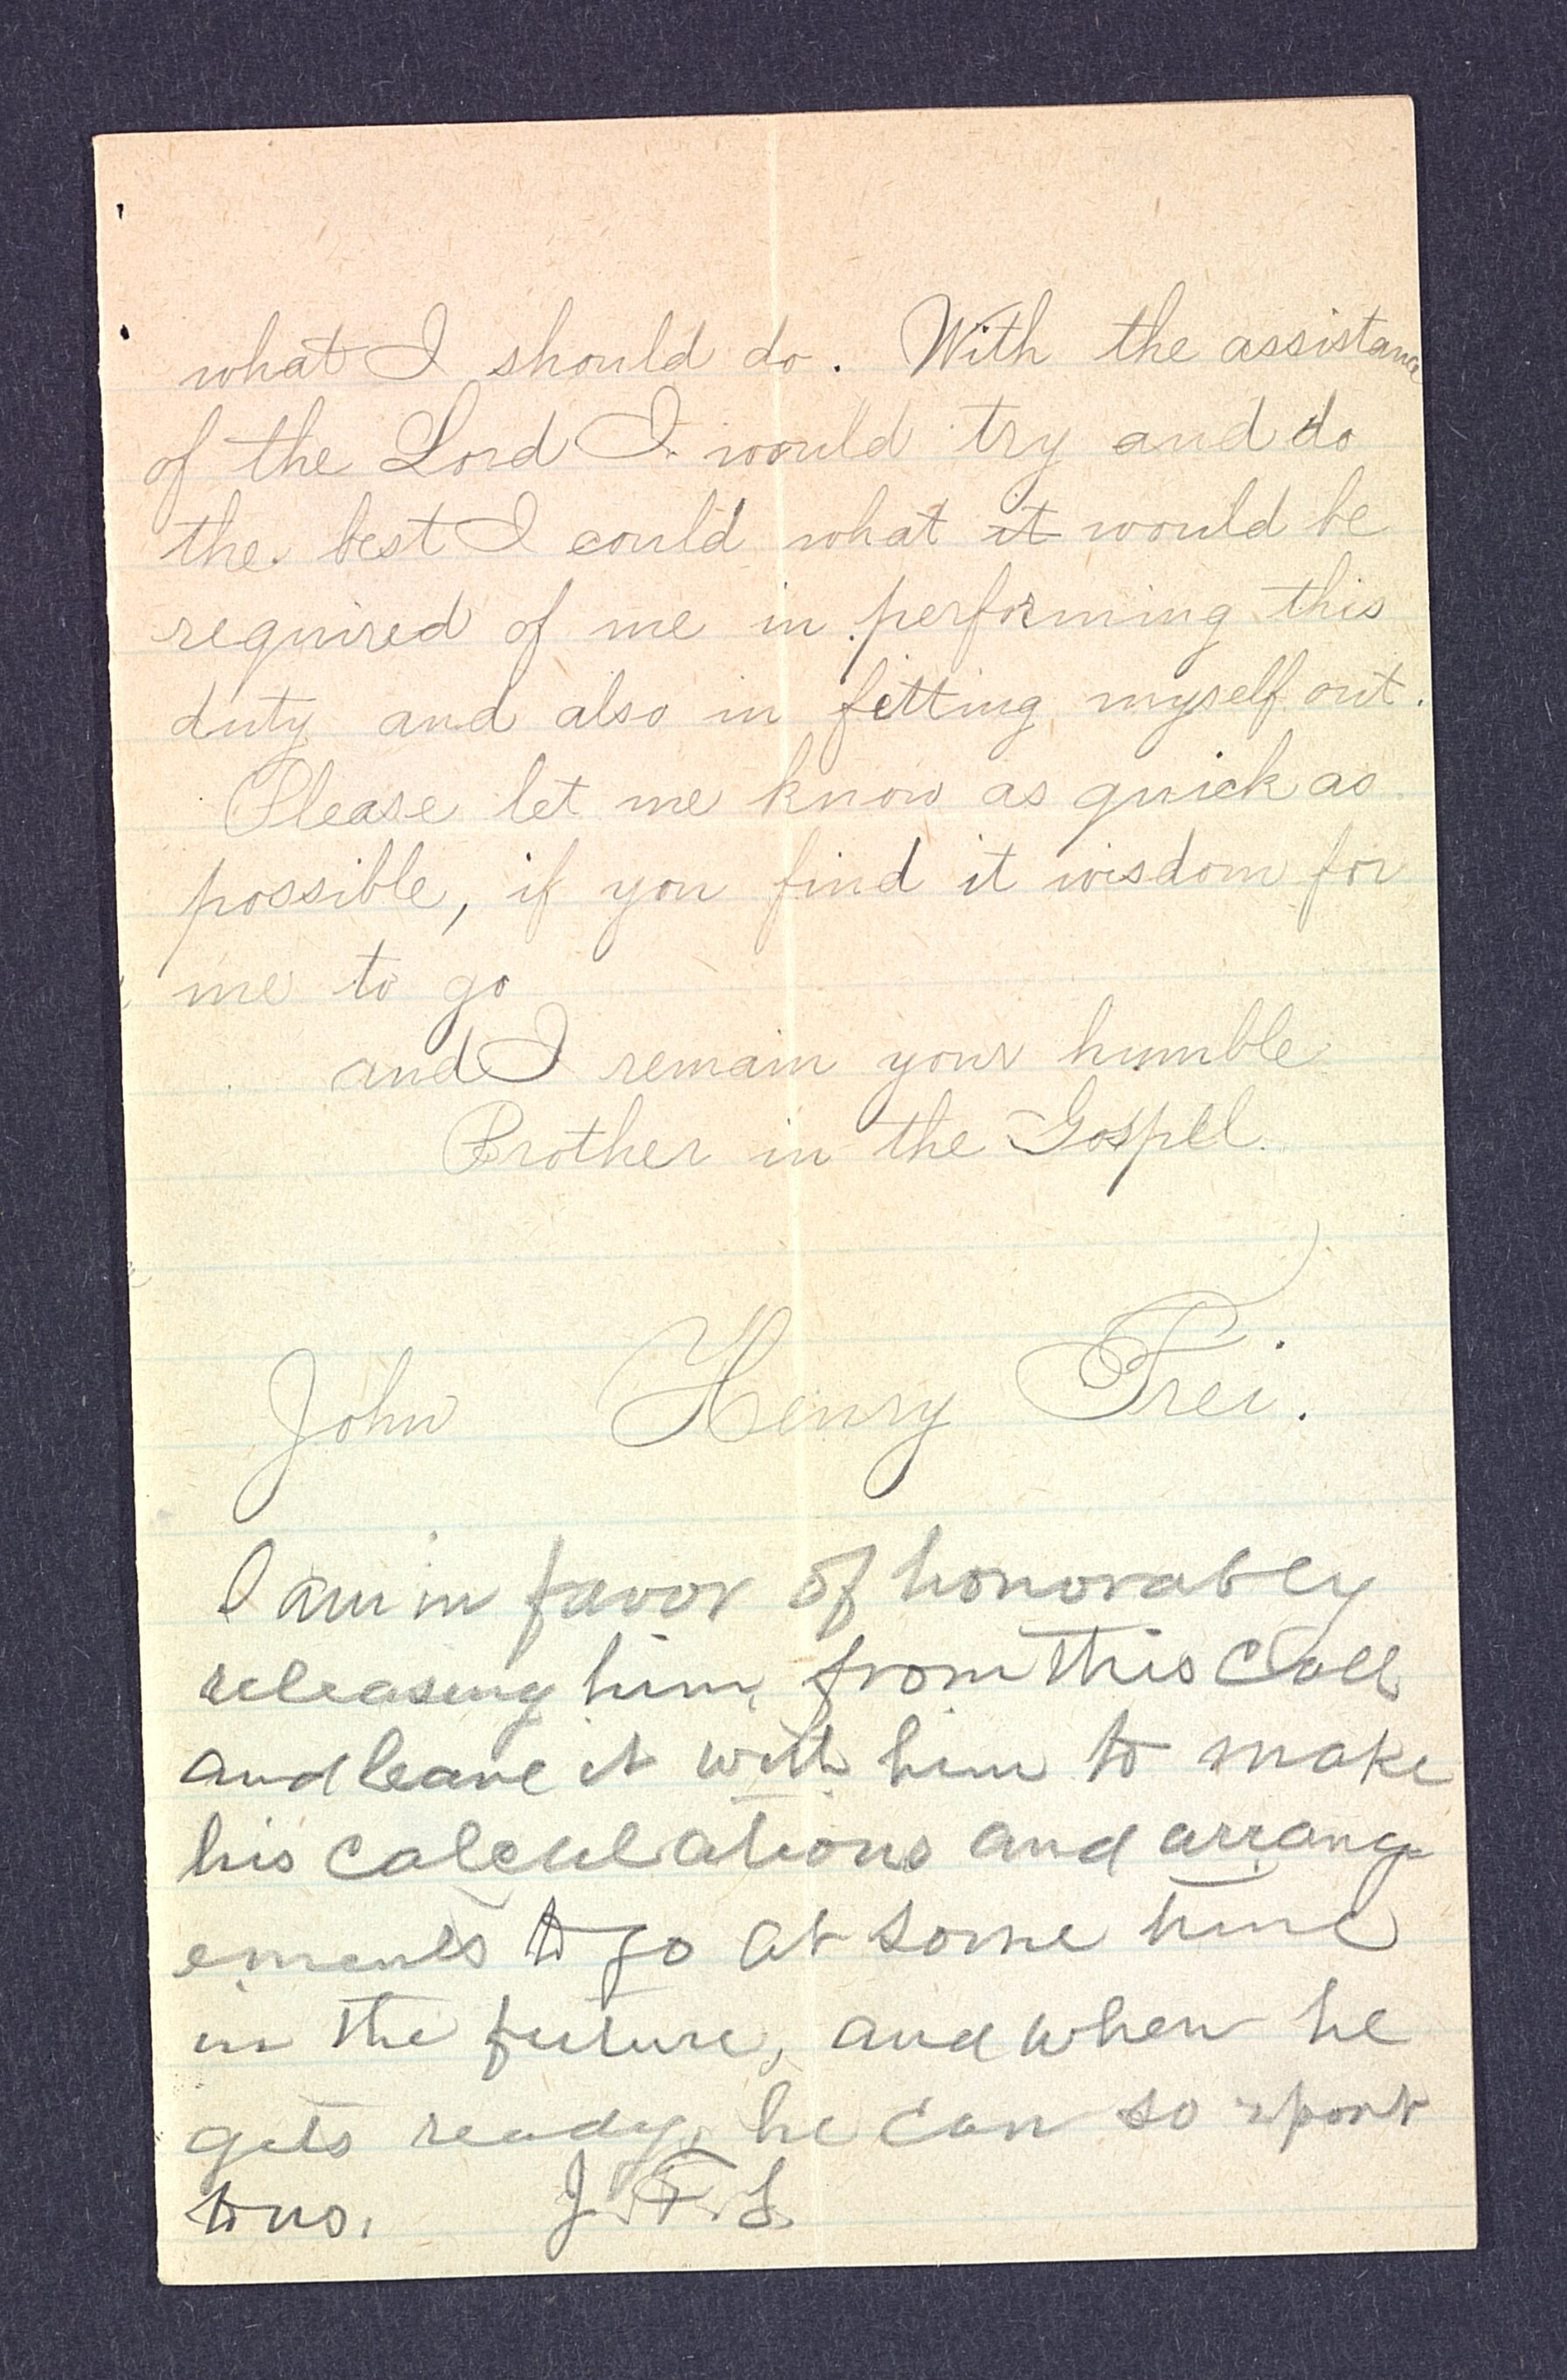 what I should do. With the assistance
of the Lord I would try and do
the best I could what it would be
required of me in performing this
duty and also in fitting myself out.
Please let me know as quick as
possible, if you find it wisdom for
me to go
and I remain your humble
Brother in the Gospel.
John Henry Frei.
I am in favor of honorably
releasing him, from this Call
and leave it with him to make
his calculations and arrang-
ements to go at some time
in the future, and when he
gets ready, he can so report
to us. J. F. S.